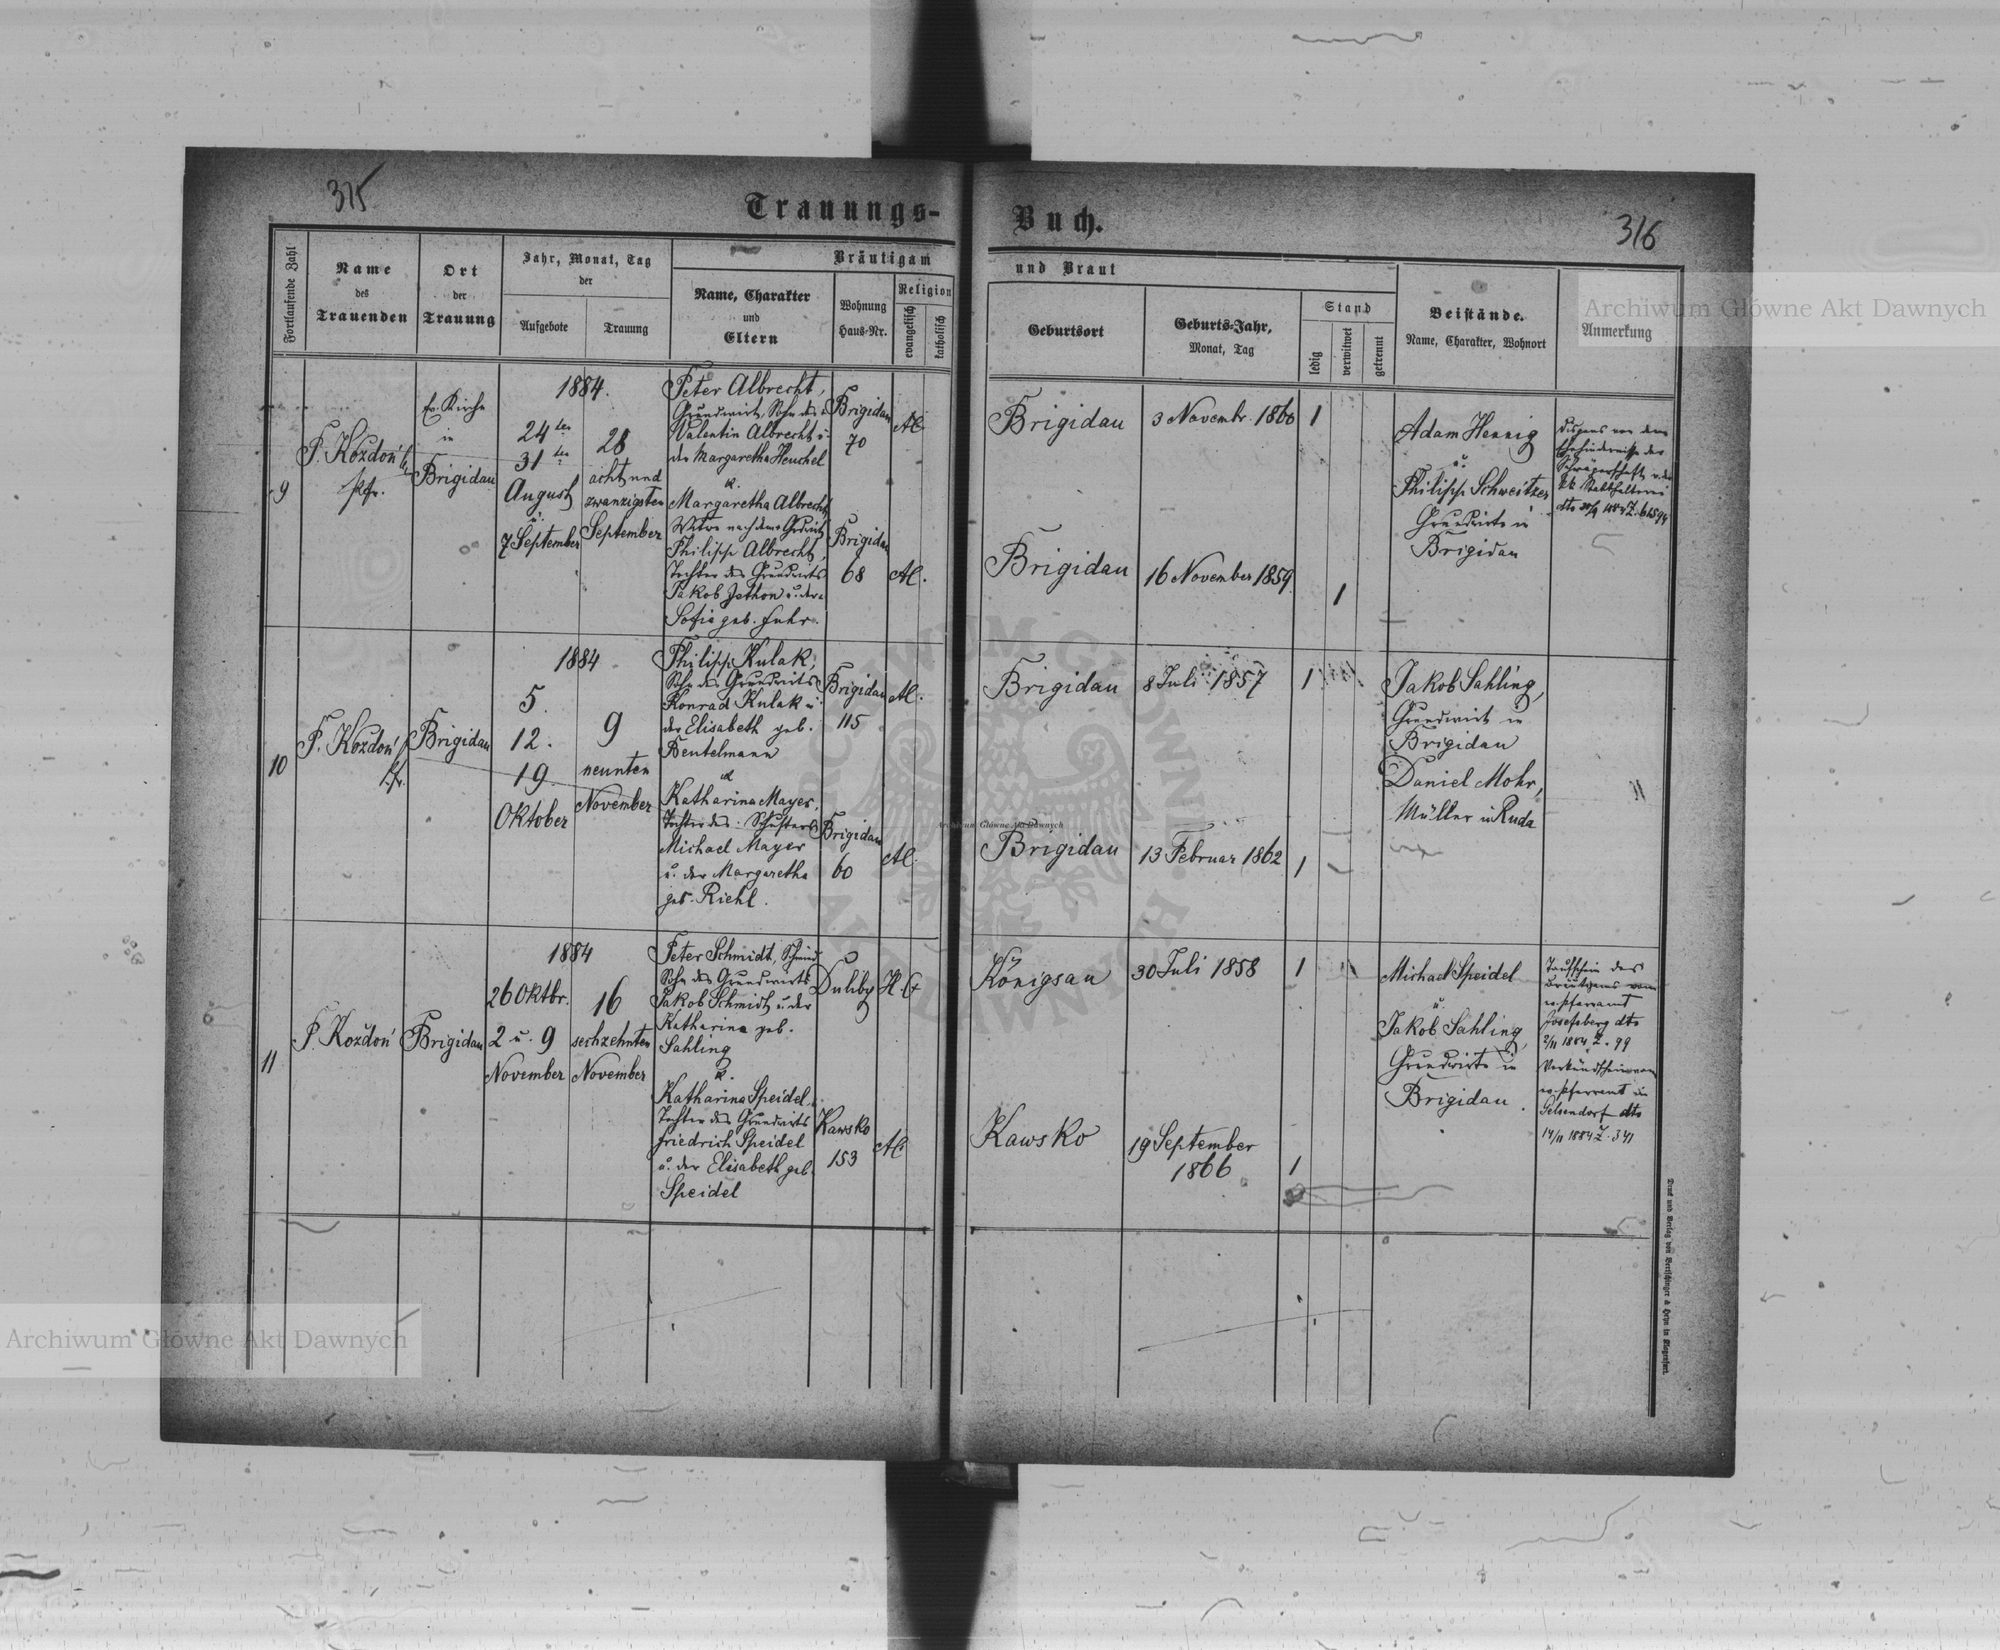 315
Trauungs-
Buch.
316
Fortlaufende Zahl
Name
des
Trauenden
Ort
der
Trauung
Jahr, Monat, Tag
der
Aufgebote
Trauung
Bräutigam
Name, Charakter
und
Eltern
Wohnung
Haus-Nr.
Religion
evangelisch
katholisch
und Braut
Geburtsort
Geburts-Jahr,
Monat, Tag
Stand
ledig
verwitwet
getrennt
Beistände.
Name, Charakter, Wohnort
Anmerkung
9
P. Kozdoń
Pfr.
Ev. Kirche
in
Brigidau
1884.
24ten
31ten
August
u.
7 September
28
acht und
zwanzigsten
September
Peter Albrecht,
Grundwirt, Sohn des
Valentin Albrecht u.
der Margaretha Heuchel
u.
Margaretha Albrecht,
Witwe nach dem Grdwirt
Philipp Albrecht,
Tochter des Grundwirts
Jakob Jethon u. der
Sofie geb. Fuhr.
Brigidau
70
A.C.
Brigidau
68
A.C.
Brigidau
3 Novembr. 1860
1
Brigidau
16 November 1859
1
Adam Hennig
u.
Philipp Schweitzer
Grundwirte in
Brigidau
Dispens von dem
Ehehindernisse der
Schwägerschaft v. der
kk. Statthalterei
10
P. Kozdoń
Pfr.
Brigidau
1884
5.
12.
19.
Oktober
9
neunten
November
Philipp Kulak,
Sohn des Grundwirts
Konrad Kulak u.
der Elisabeth geb.
Beutelmann
u.
Katharina Mayer,
Tochter des Schusters
Michael Mayer
u. der Margaretha
geb. Riehl.
Brigidau
115
A.C.
Brigidau
60
A.C.
Brigidau
8 Juli 1857
1
Brigidau
13 Februar 1862
1
Jakob Sahling,
Grundwirt in
Brigidau
Daniel Mohr,
Müller in Ruda
11
P. Kozdoń
Brigidau
1884
26 Oktbr.
2 u. 9
November
16
sechzehnten
November
Peter Schmidt, Schmied
Sohn des Grundwirts
Jakob Schmidt u. der
Katharina geb.
Sahling
u.
Katharina Speidel,
Tochter des Grundwirts
Friedrich Speidel
u. der Elisabeth geb.
Speidel
Duliby
H.C.
Kawsko
153
A.C.
Königsau
30 Juli 1858
1
Kawsko
19 September
1866
1
Michael Speidel
u.
Jakob Sahling,
Grundwirte in
Brigidau.
Taufschein des
Bräutigams vom
ev. Pfarramt
Josefsberg dto
2/11 1884 Z. 99
Verkündschein vom
ev. Pfarramt in
Gelsendorf dto
14/11 1884 Z. 341
Archiwum Główne Akt Dawnych
Archiwum Główne Akt Dawnych
Archiwum Główne Akt Dawnych
ARCHIWUM GŁÓWNE
AKT DAWNYCH